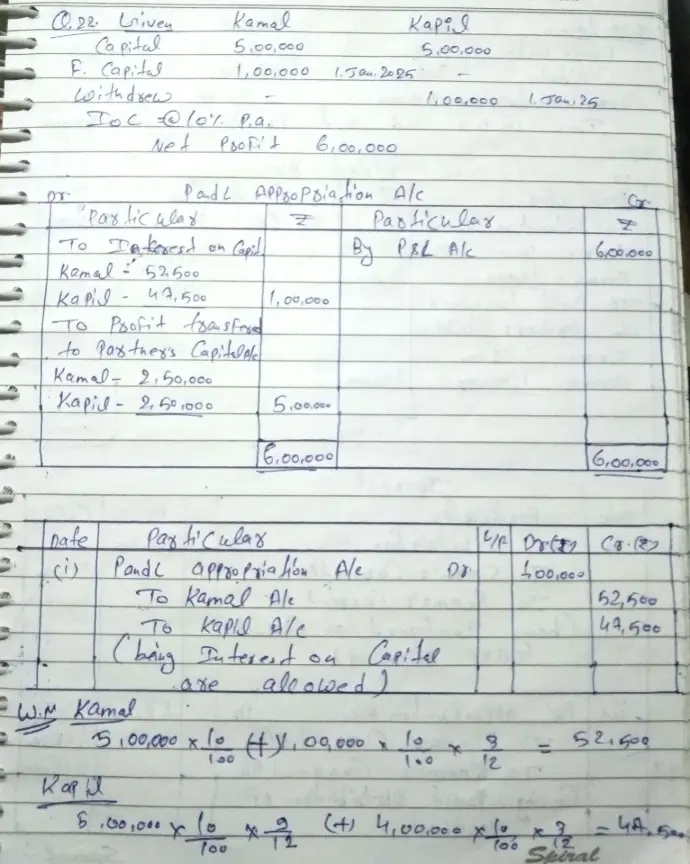 Q.22. Given Kamal Kapil
Capital 5,00,000 5,00,000
F. Capital 1,00,000 1.Jan.2025 -
Withdrew - 1,00,000 1.Jan.25
IOC @ 10% P.a.
Net Profit 6,00,000
P and L Appropriation A/c
Dr. Cr.
Particular ₹ Particular ₹
To Interest on Capit. By P&L A/c 6,00,000
Kamal - 52,500
Kapil - 47,500 1,00,000
To Profit transfered
to Partners Capital A/c
Kamal - 2,50,000
Kapil - 2,50,000 5,00,000
6,00,000 6,00,000
Date Particular L/F Dr.(₹) Cr.(₹)
(i) P and L appropriation A/c Dr 100,000
To Kamal A/c 52,500
To Kapil A/c 47,500
(being Interest on Capital
are allowed)
W.N Kamal
5,00,000 × 10/100 (+) 1,00,000 × 10/100 × 3/12 = 52,500
Kapil
5,00,000 × 10/100 × 9/12 (+) 4,00,000 × 10/100 × 3/12 = 47,500
Spiral